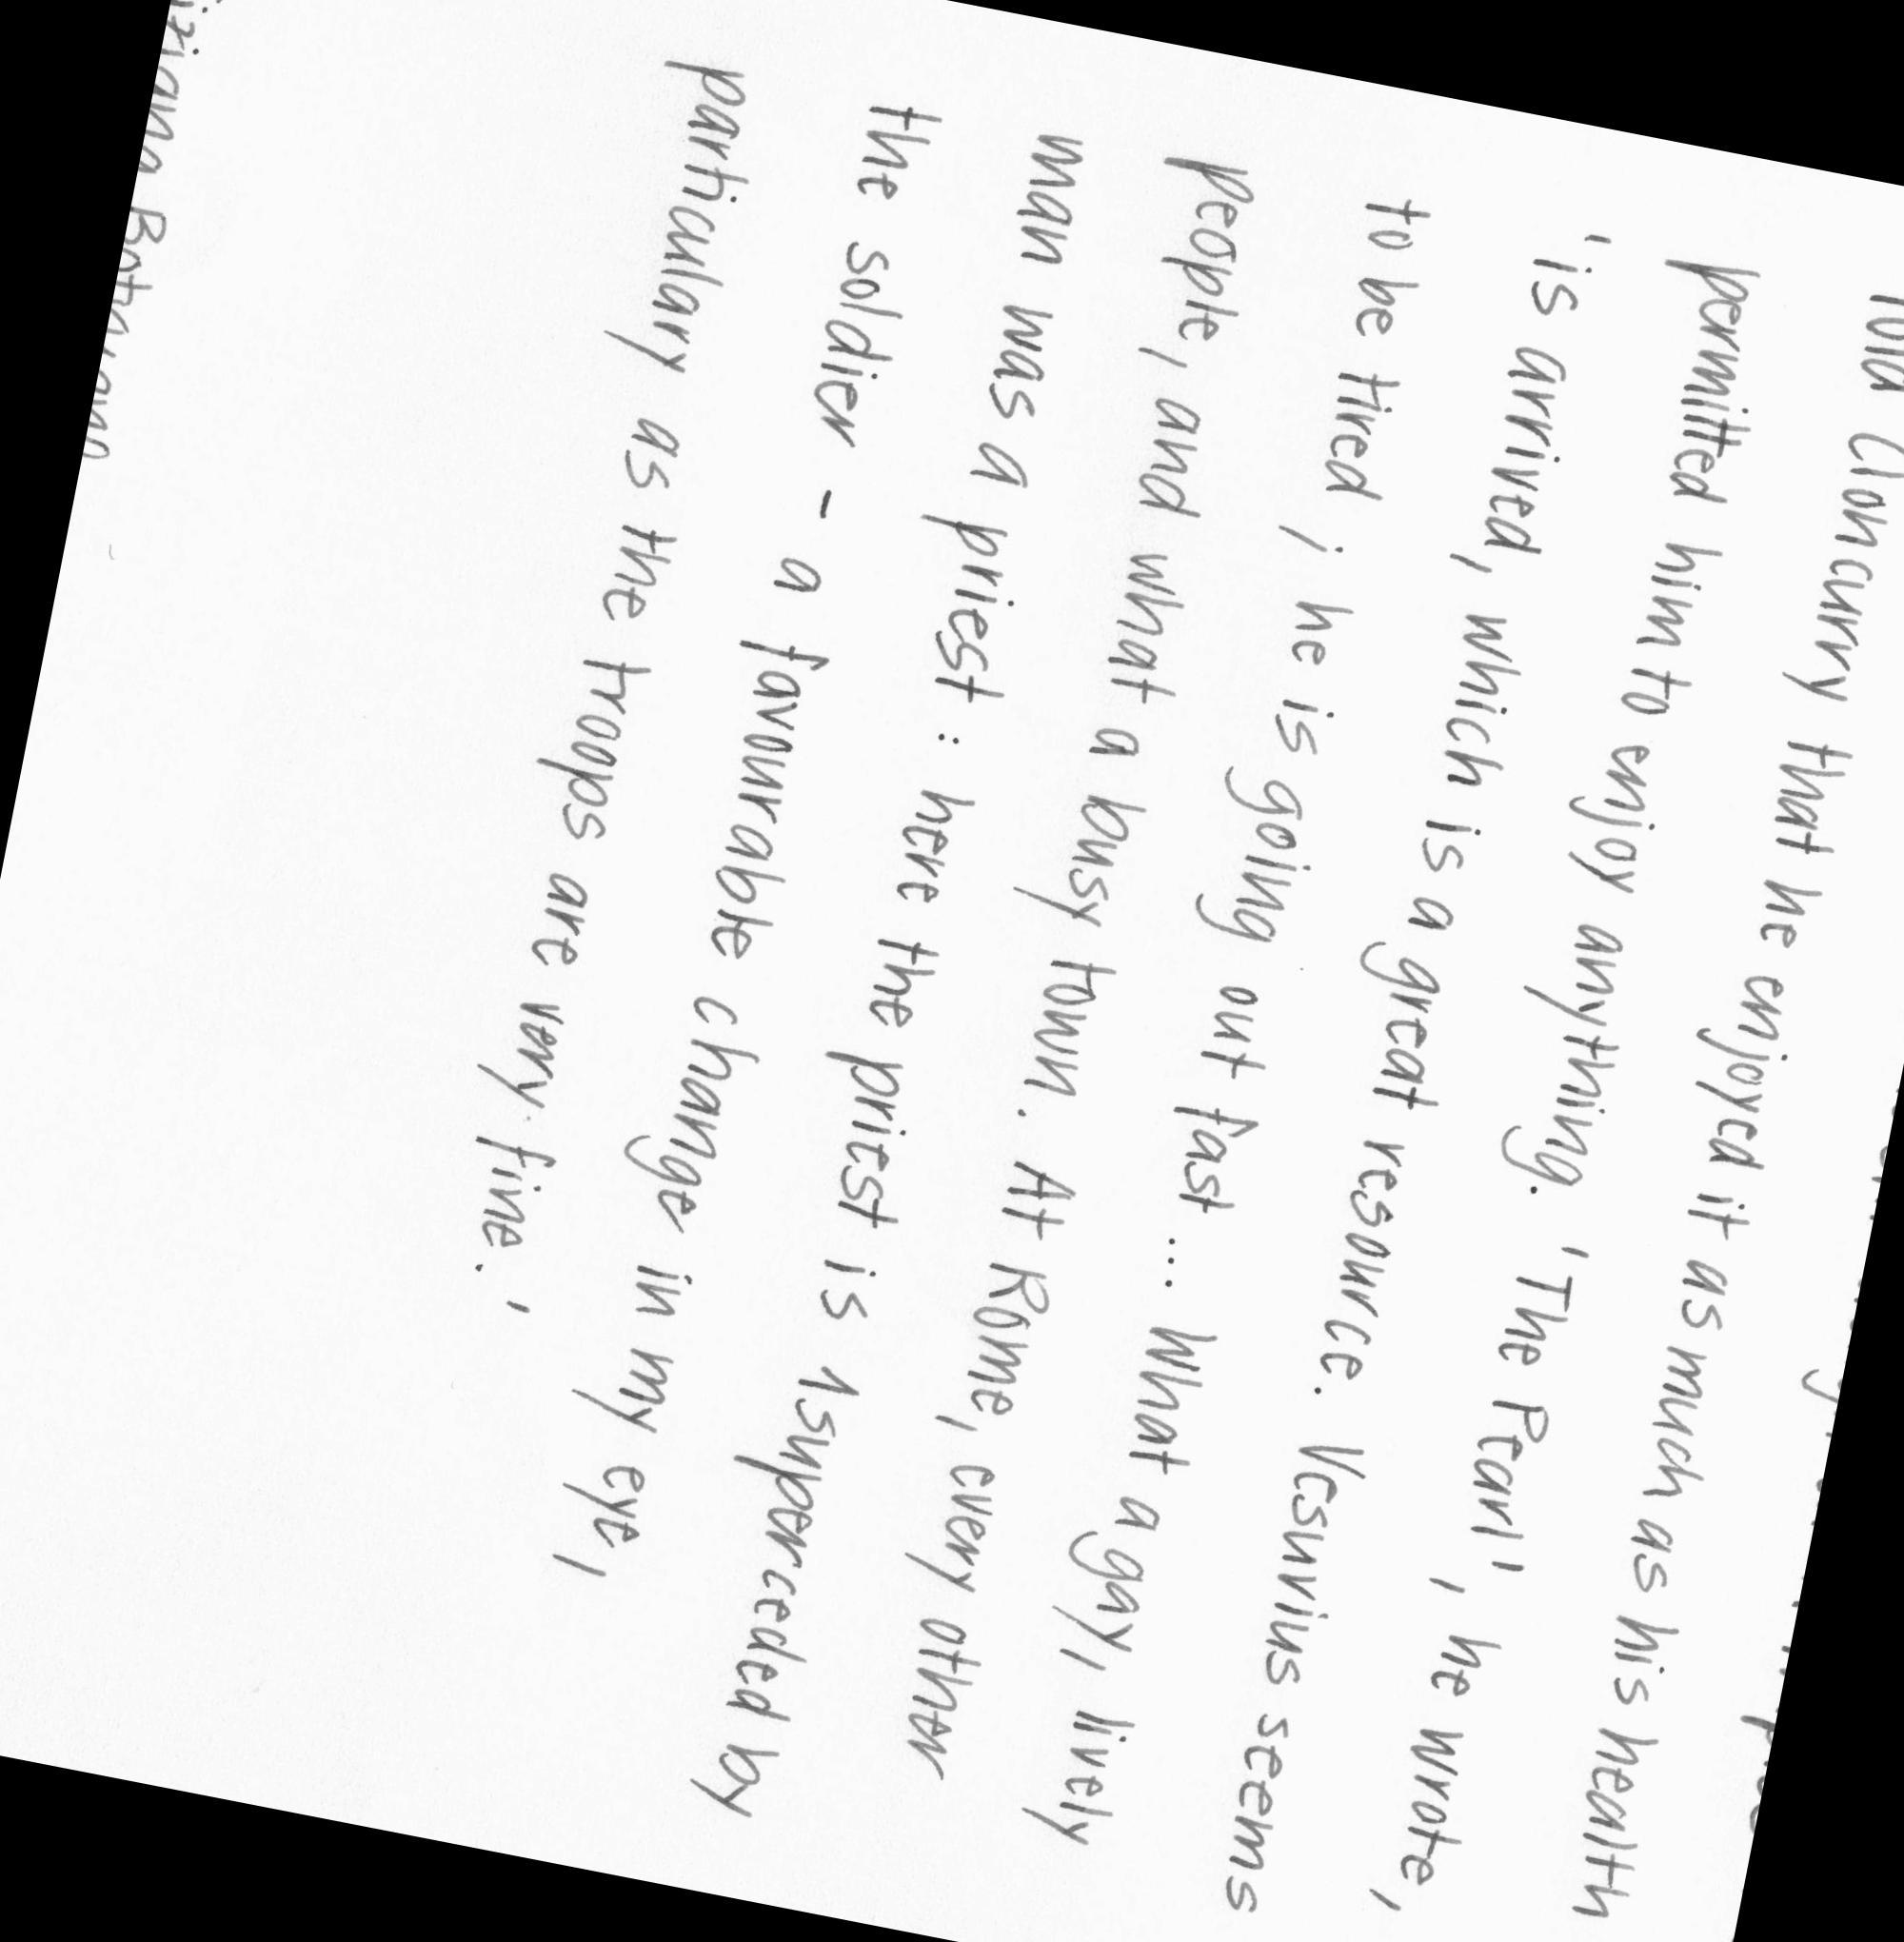 told Cloncurry that he enjoyed it as much as his health
permitted him to enjoy anything. 'The Pearl', he wrote,
'is arrived, which is a great resource. Vesuvius seems
to be tired; he is going out fast ... What a gay, lively
people, and what a busy town. At Rome, every other
man was a priest: here the priest is 1superceded by
the soldier - a favourable change in my eye,
particulary as the troops are very fine.'